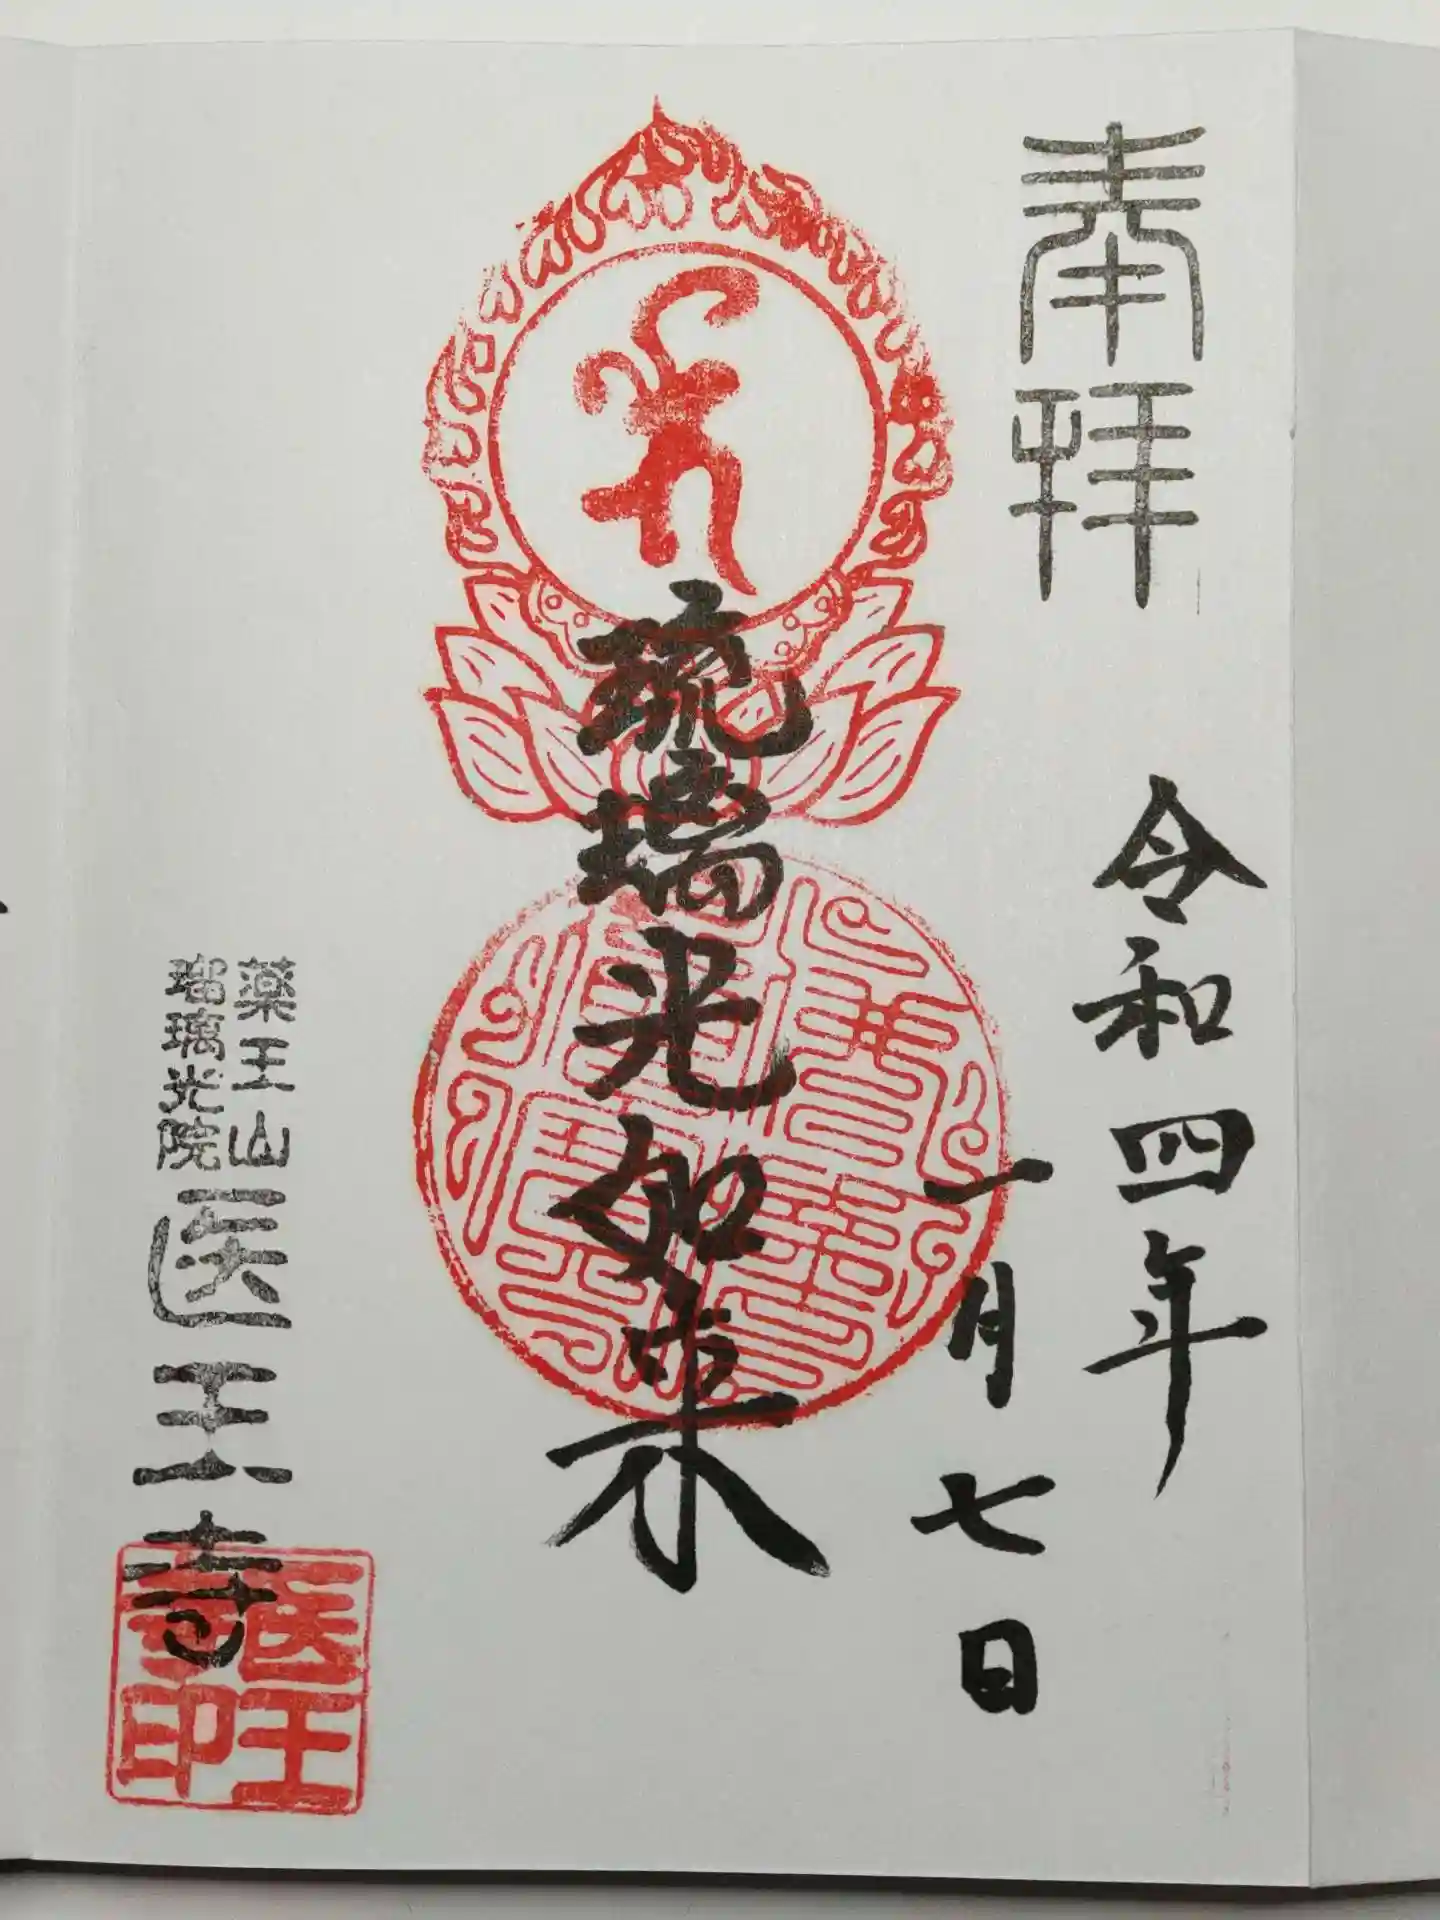 奉拝
令和四年
一月七日
琉璃光如来
薬王山
瑠璃光院
医王寺
医王
寺印